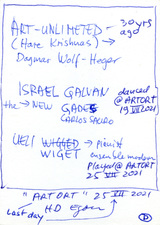 ART-UNLIMETED → 30 yrs ago
(Hare Krishnas) →
Dagmar Wolf-Heger
ISRAEL GALVAN danced @ ARTORT
the → NEW GADES 19 VII 2021
CARLOS
UELI WIGGED → Pianist
WIGET ensemble modern
Played @ ARTORT
25 VII 2021
"ARTORT" 25 VII 2021
Last day HD